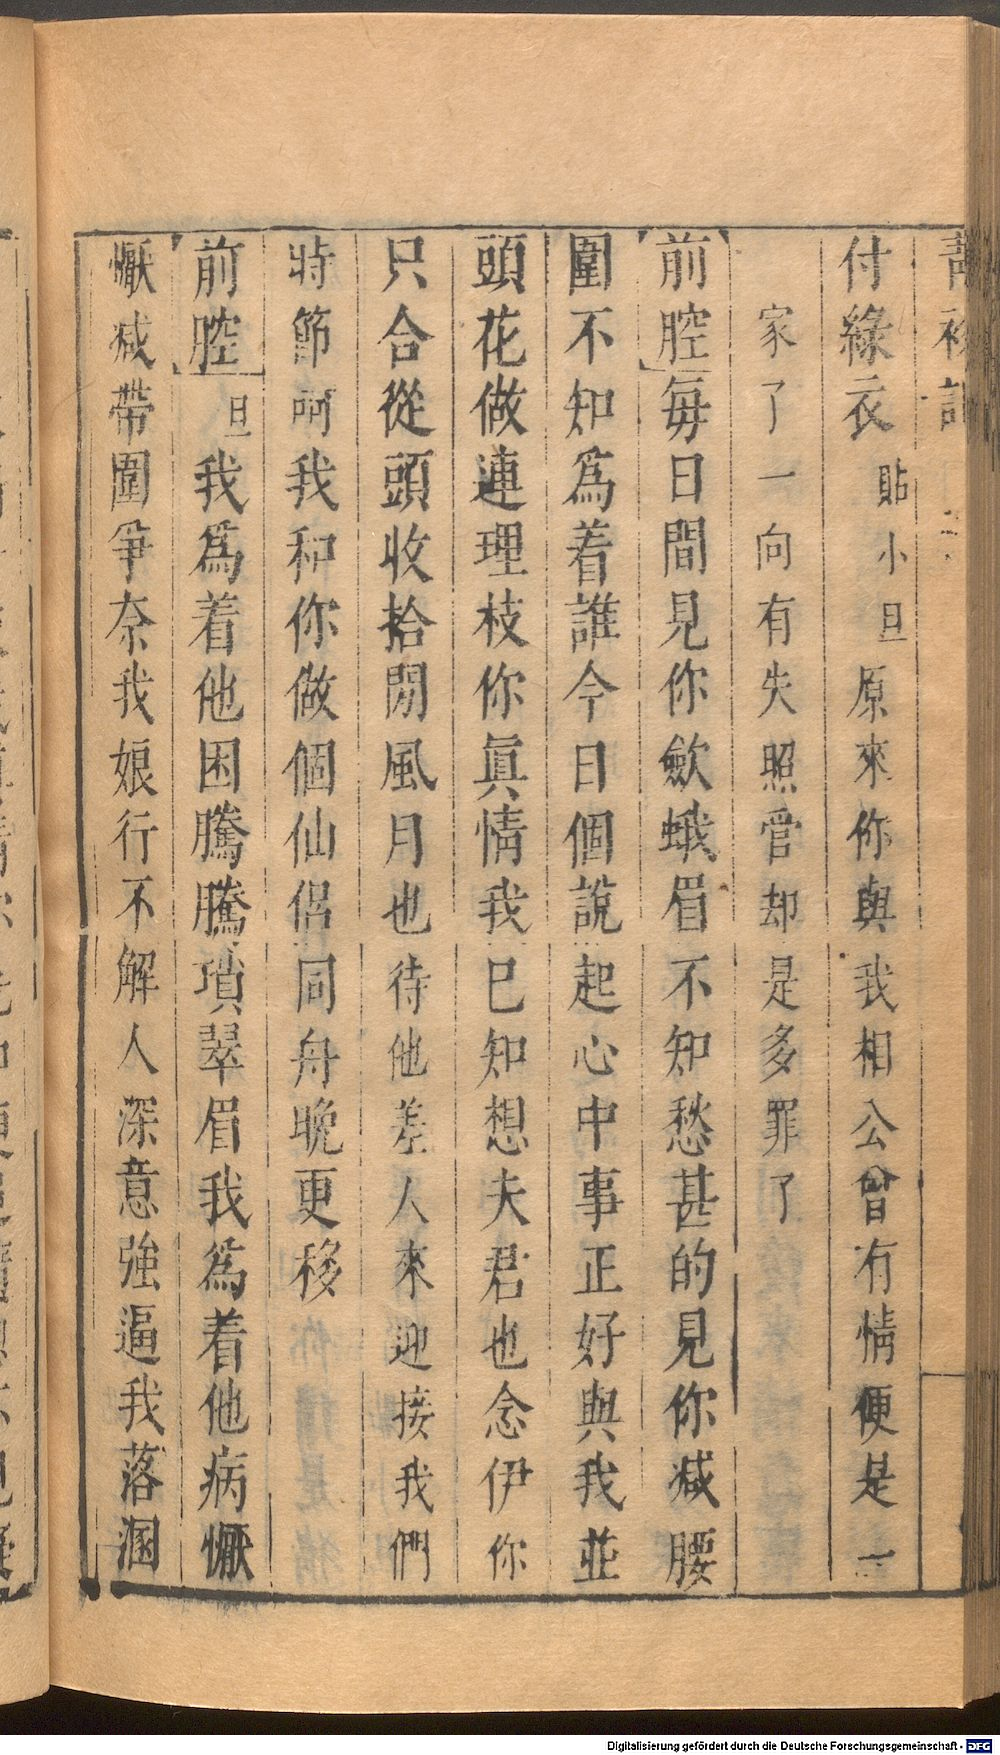 付綠衣 貼小旦 原來你與我相公曾有情便是一
家了一向有失照管却是多罪了
前腔 每日間見你歛蛾眉不知愁甚的見你减腰
圍不知爲着誰今日個說起心中事正好與我並
頭花做連理枝你眞情我已知想夫君也念伊你
只合從頭收拾閒風月也待他差人來迎接我們
時節呵我和你做個仙侶同舟晚更移
前腔 旦 我爲着他困騰騰瑣翠眉我爲着他病懨
懨减帶圍爭奈我娘行不解人深意強逼我落溷
Digitalisierung gefördert durch die Deutsche Forschungsgemeinschaft - DFG